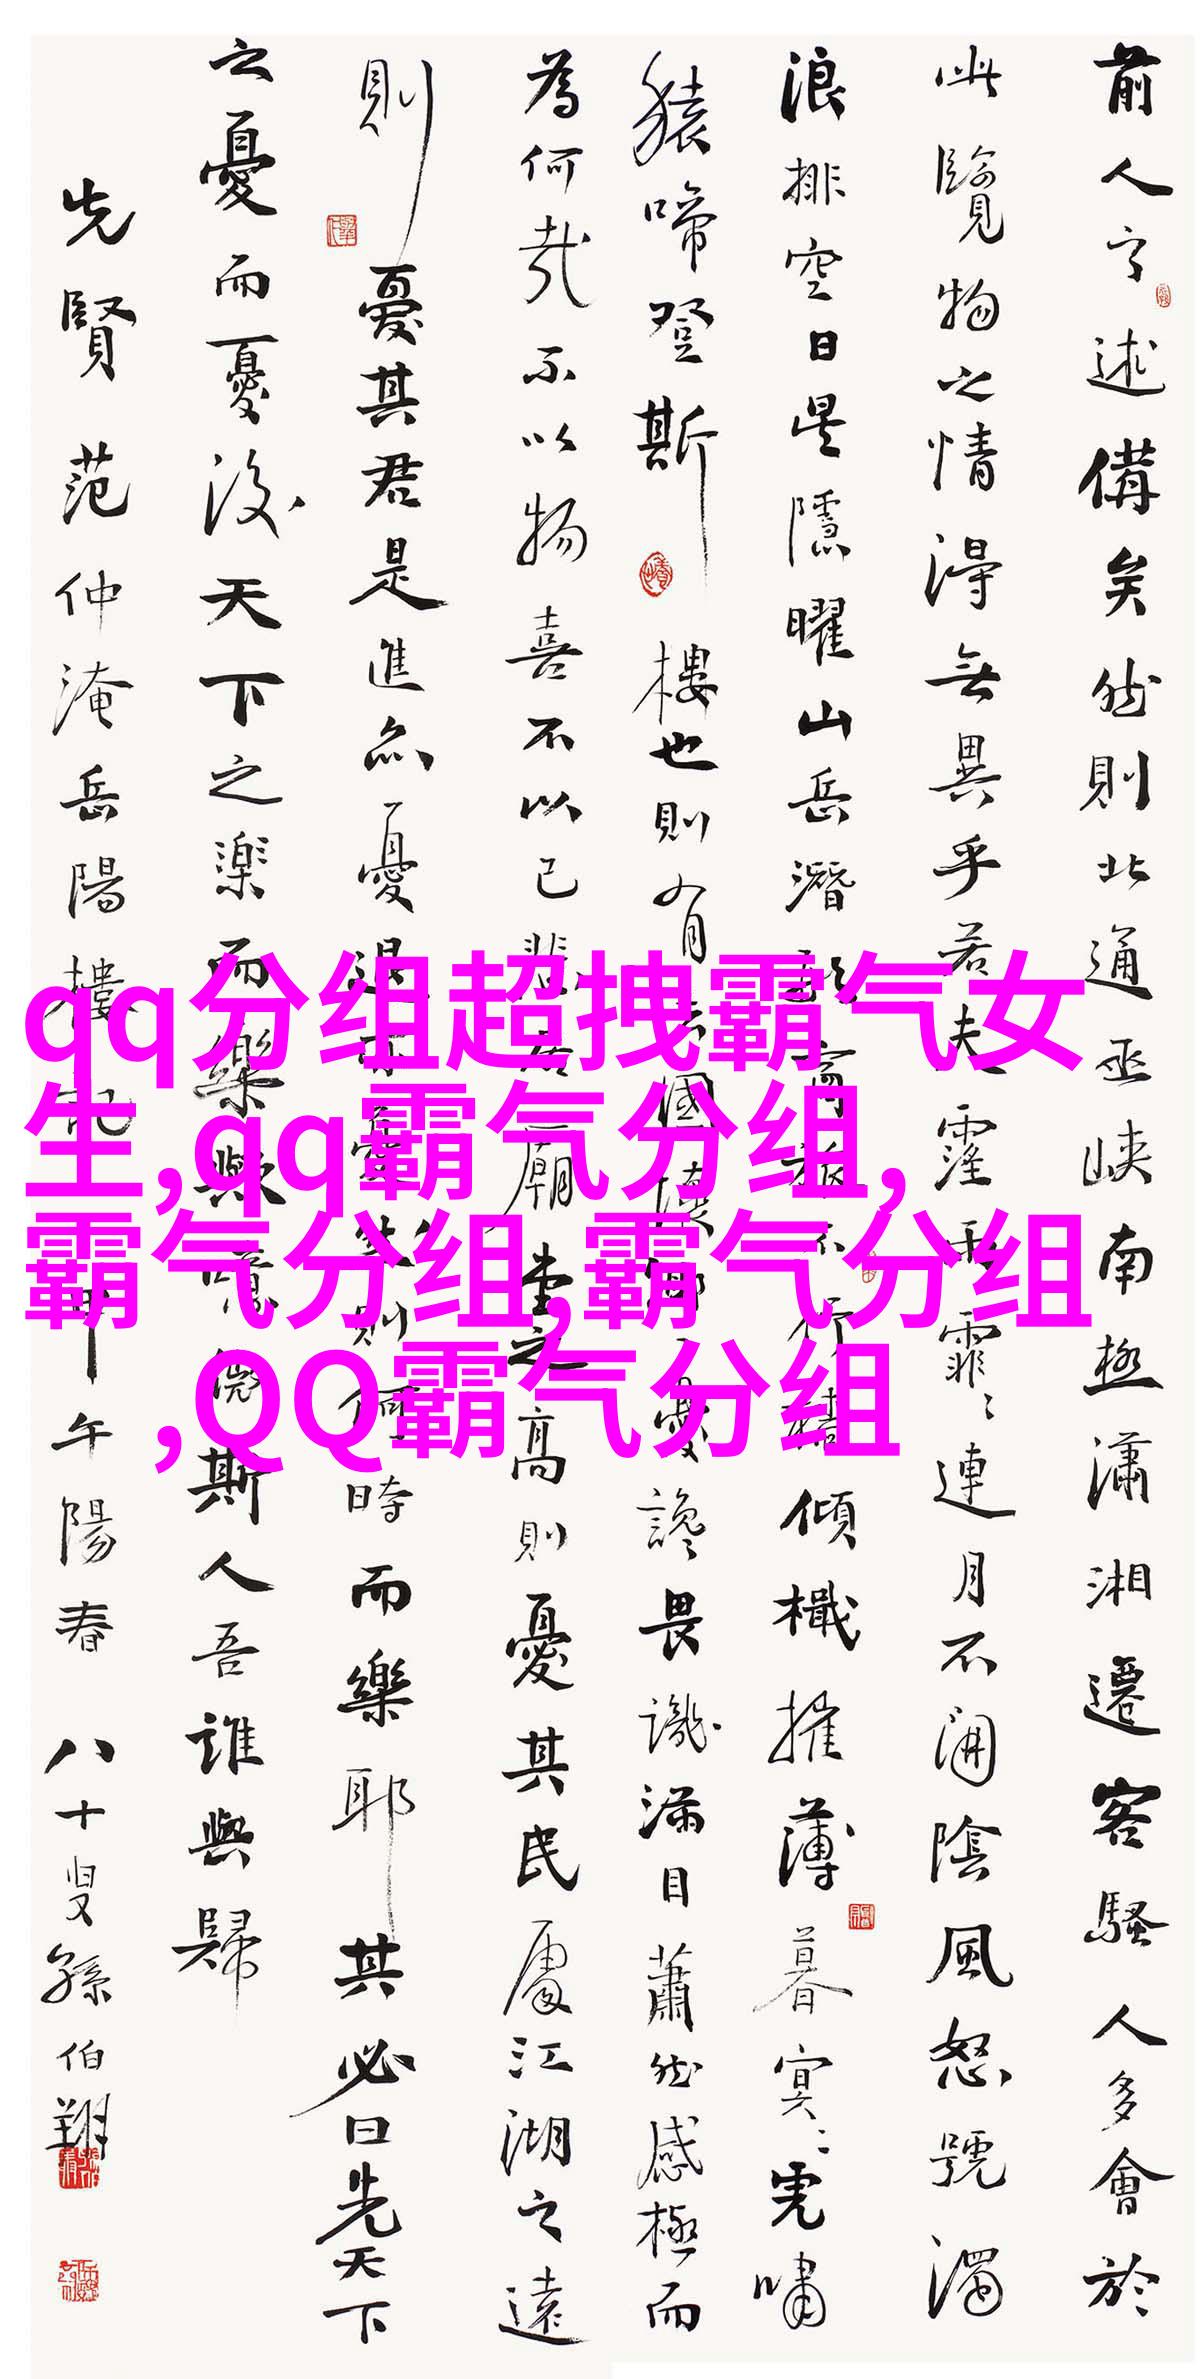 前人之述備矣然則北通巫峽南極瀟湘遷客騷人多會於
此覽物之情得無異乎若夫霪雨霏〻連月不開陰風怒號濁
浪排空日星隱曜山岳潛形商旅不行檣傾檝摧薄暮冥〻虎嘯
猿啼登斯樓也則有去國懷鄉憂讒畏譏滿目蕭然感極而
為何哉不以物喜不以己悲居廟堂之高則憂其民處江湖之遠
則憂其君是進亦憂退亦憂然則何時而樂耶其必曰先天下
之憂而憂後天下之樂而樂歟噫微斯人吾誰與歸
先賢范仲淹岳陽樓記甲午陽春八十叟孫伯翔
qq分组超拽霸气女
生,qq霸气分组,
霸气分组,霸气分组
,QQ霸气分组